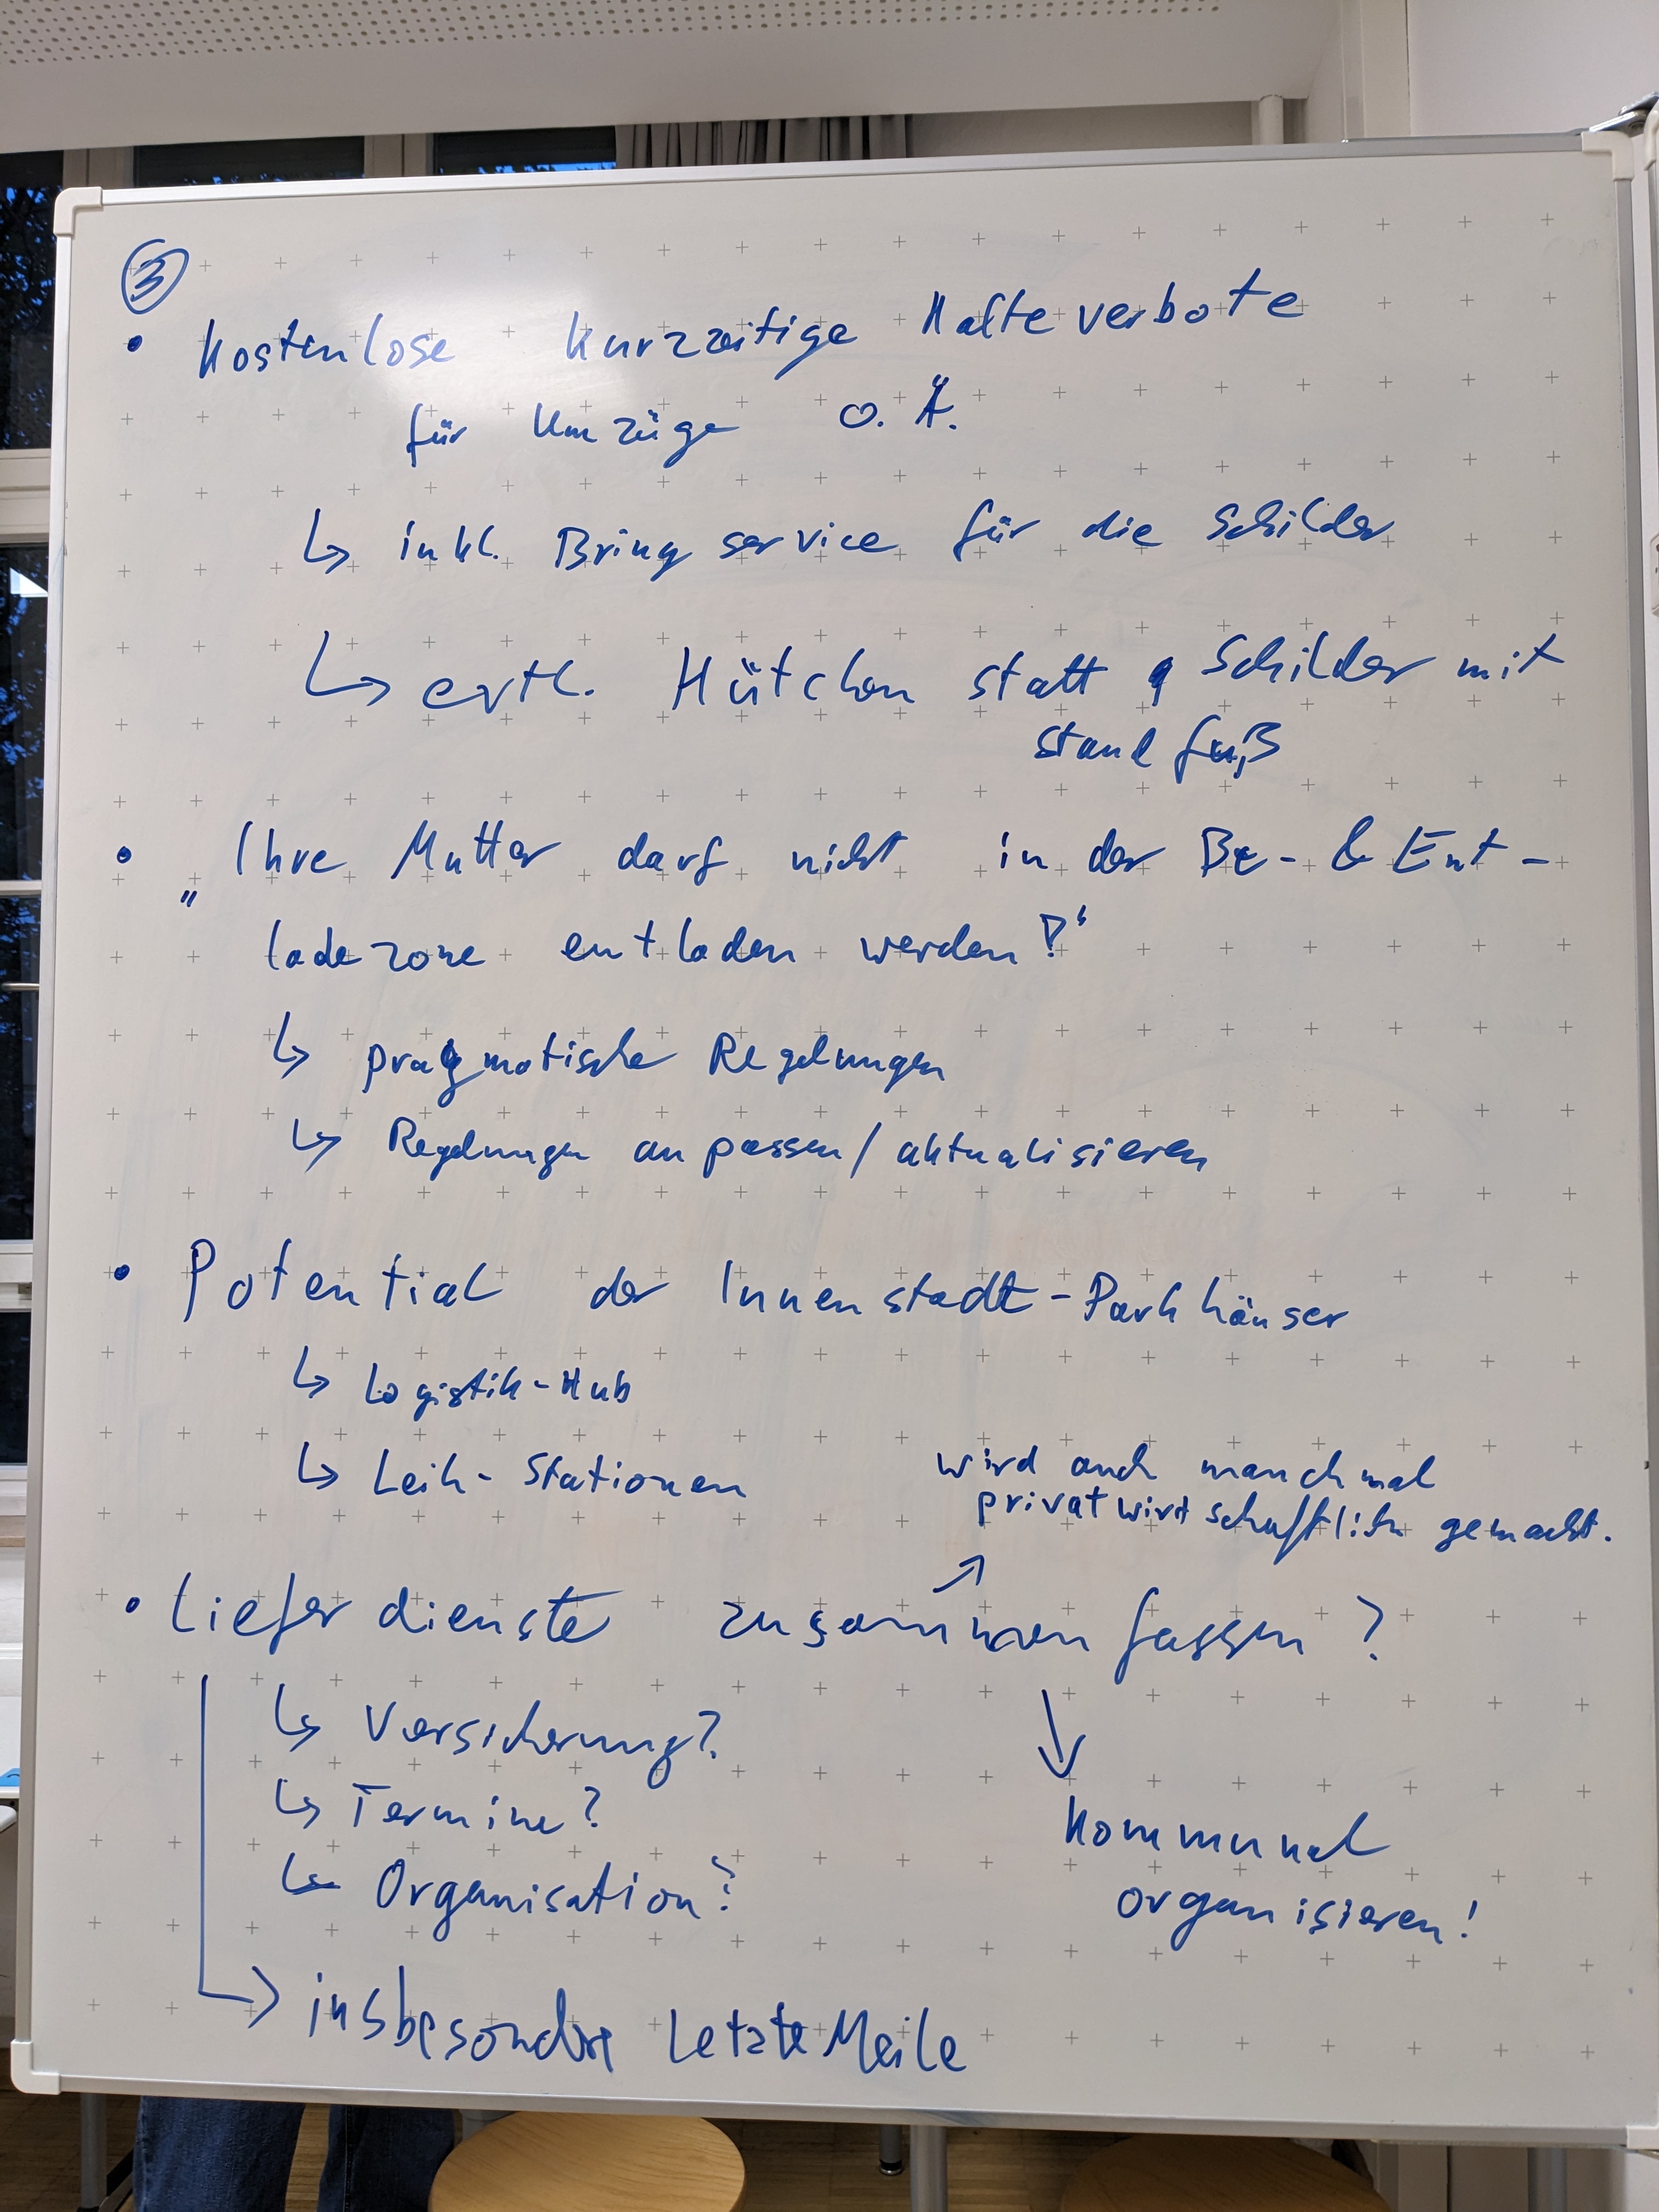 ③
• Kostenlose kurzzeitige Halteverbote
für Umzüge o. Ä.
↳ inkl. Bringservice für die Schilder
↳ evtl. Hütchen statt Schilder mit
Standfuß
• „Ihre Mutter darf nicht in der Be- & Ent-
ladezone entladen werden!“
↳ pragmatische Regelungen
↳ Regelungen anpassen/aktualisieren
• Potential der Innenstadt-Parkhäuser
↳ Logistik-Hub
↳ Leih-Stationen
wird auch manchmal
privatwirtschaftlich gemacht.
↗
• Lieferdienste zusammenfassen?
↳ Versicherung?
↳ Termine?
↳ Organisation?
↓
Kommunal
organisieren!
↳ insbesondre Letzte Meile